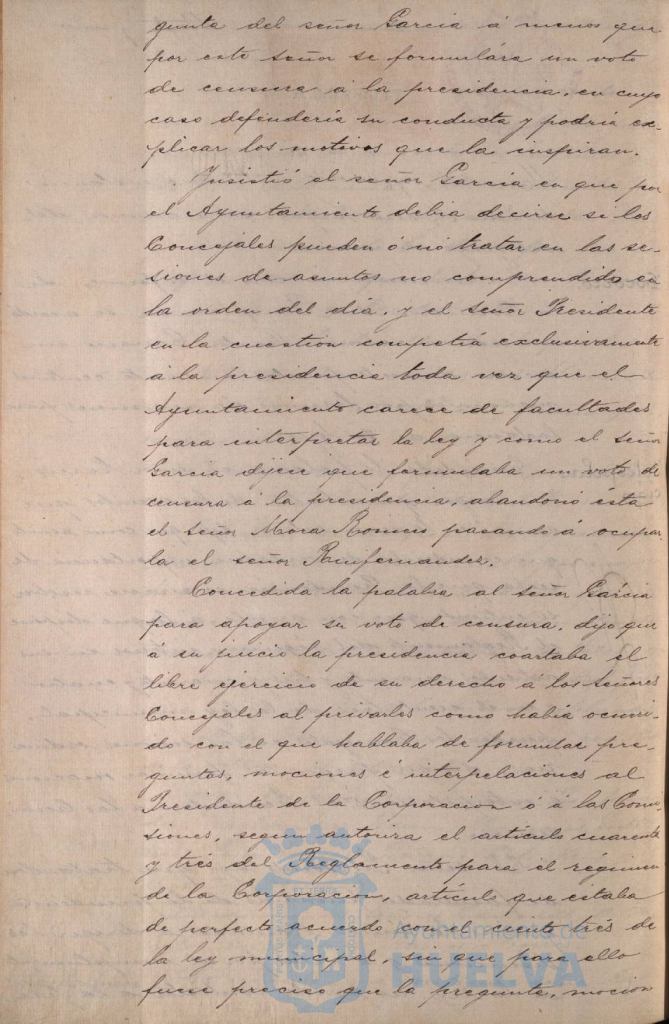 gunta del señor Garcia á menos que
por este señor se formulára un voto
de censura á la presidencia, en cuyo
caso defendería su conducta y podría ex-
plicar los motivos que la inspiran.
Insistió el señor Garcia en que por
el Ayuntamiento debia decirse si los
Concejales pueden ó nó tratar en las se-
siones de asuntos no comprendido en
la orden del día, y el señor Presidente
en la cuestion competiá exclusivamente
á la presidencia toda vez que el
Ayuntamiento carece de facultades
para interpretar la ley y como el señor
Garcia dijese que formulaba un voto de
censura á la presidencia, abandonó ésta
el señor Mora Romero pasando á ocupar
la el señor
Concedida la palabra al señor García
para apoyar su voto de censura, dijo que
á su juicio la presidencia coartaba el
libre ejercicio de su derecho á los señores
Concejales al privarles como había ocurri-
do con el que hablaba de formular pre-
guntas, mociones é interpelaciones al
Presidente de la Corporacion ó á las Comi
siones, segun autoriza el artículo cuarenta
y tres del Reglamento para el régimen
de la Corporacion, artículo que estaba
de perfecto acuerdo con el ciento trés de
la ley municipal, sin que para ello
fuese preciso que la pregunta, mocion
Ayuntamiento de
HUELVA